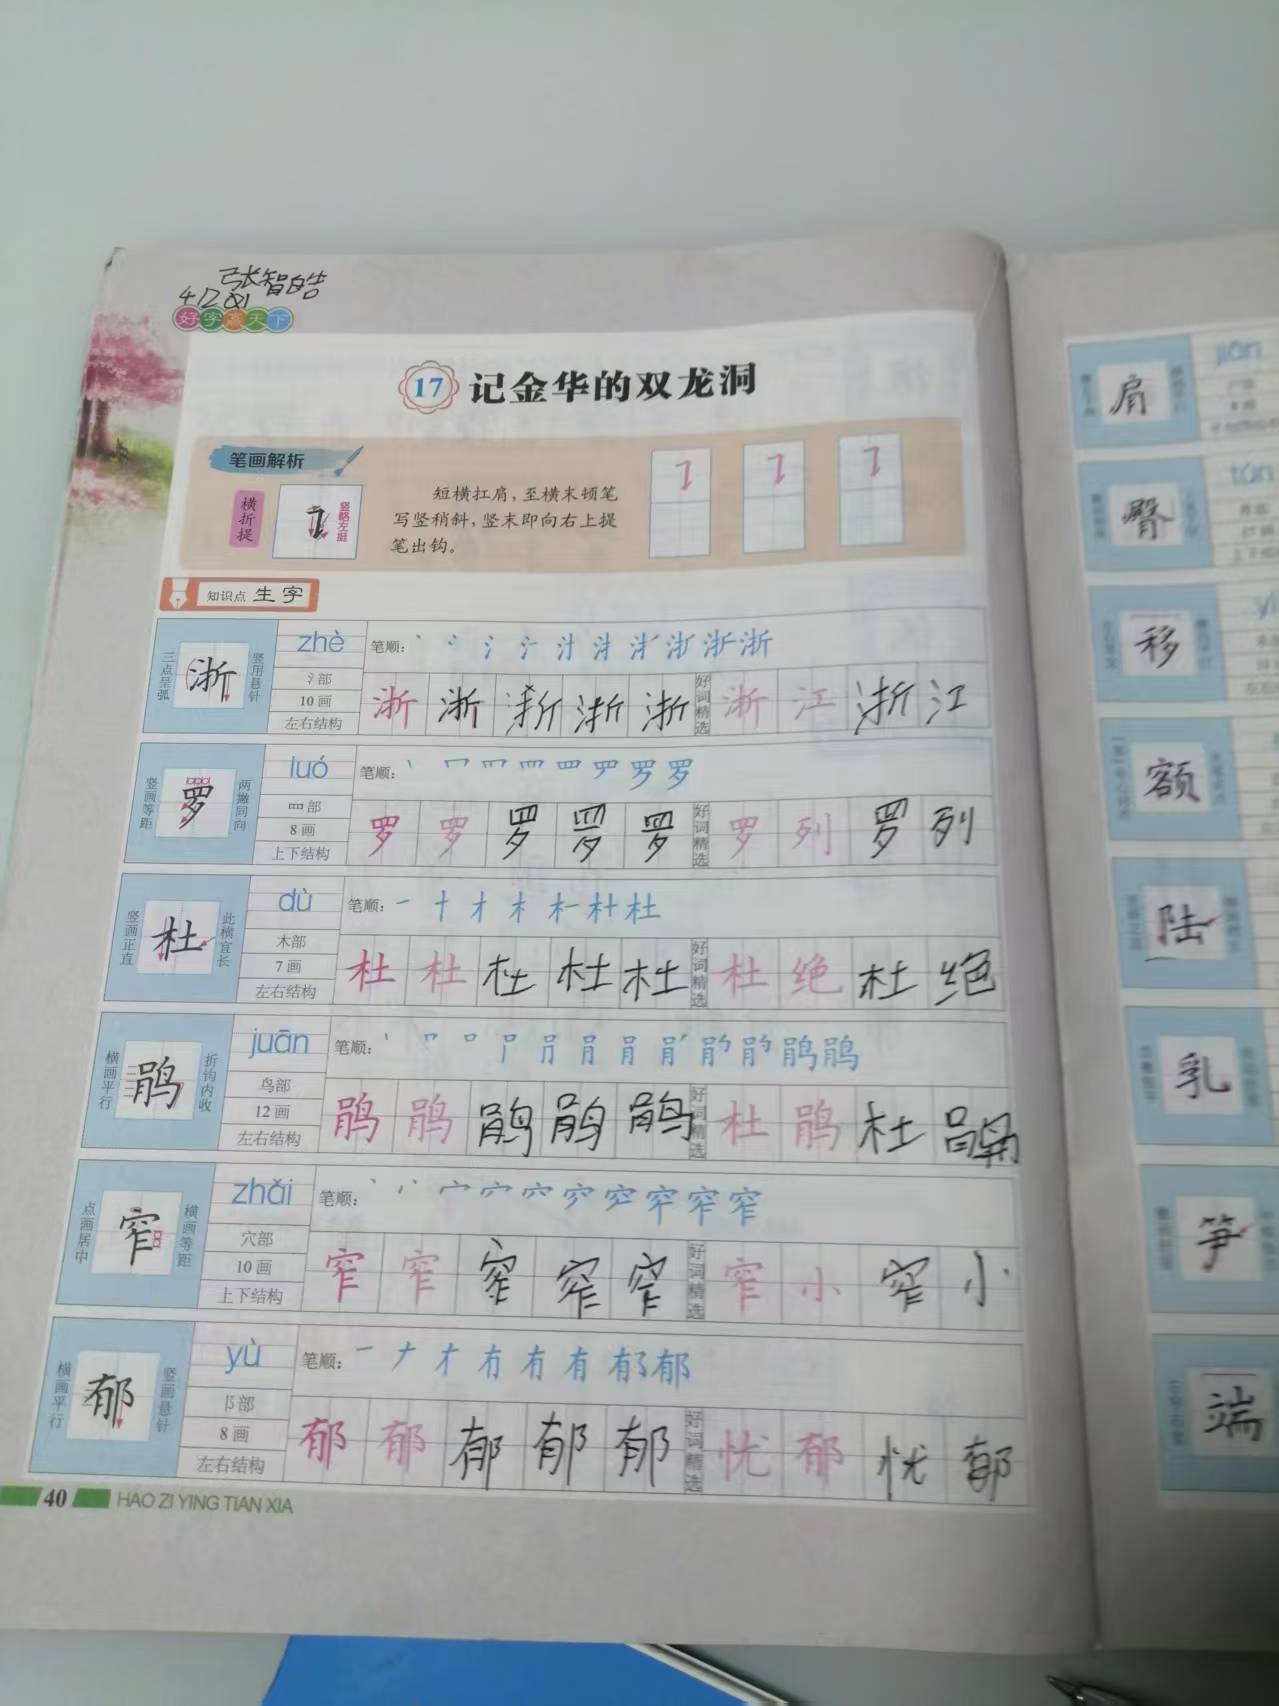 张智皓
41201
好字赢天下
17 记金华的双龙洞
笔画解析
横折提
竖略左挺
短横扛肩,至横末顿笔
写竖稍斜,竖末即向右上提
笔出钩。
知识点 生字
三点呈弧 浙 竖用悬针
zhè
氵部
10画
左右结构
笔顺:
浙 浙 浙 浙 浙 好词精选 浙 江 浙 江
竖画等距 罗 两撇同向
luó
罒部
8画
上下结构
笔顺:
罗 罗 罗 罗 罗 好词精选 罗 列 罗 列
竖画正直 杜 此横宜长
dù
木部
7画
左右结构
笔顺:
杜 杜 杜 杜 杜 好词精选 杜 绝 杜 绝
横画平行 鹃 折钩内收
juān
鸟部
12画
左右结构
笔顺:
鹃 鹃 鹃 鹃 鹃 好词精选 杜 鹃 杜 鹃
点画居中 窄 横画等距
zhǎi
穴部
10画
上下结构
笔顺:
窄 窄 窄 窄 窄 好词精选 窄 小 窄 小
横画平行 郁 竖画悬针
yù
阝部
8画
左右结构
笔顺:
郁 郁 郁 郁 郁 好词精选 忧 郁 忧 郁
40 HAO ZI YING TIAN XIA
肩
jiān
臀
tún
移
yí
额
陆
乳
笋
端